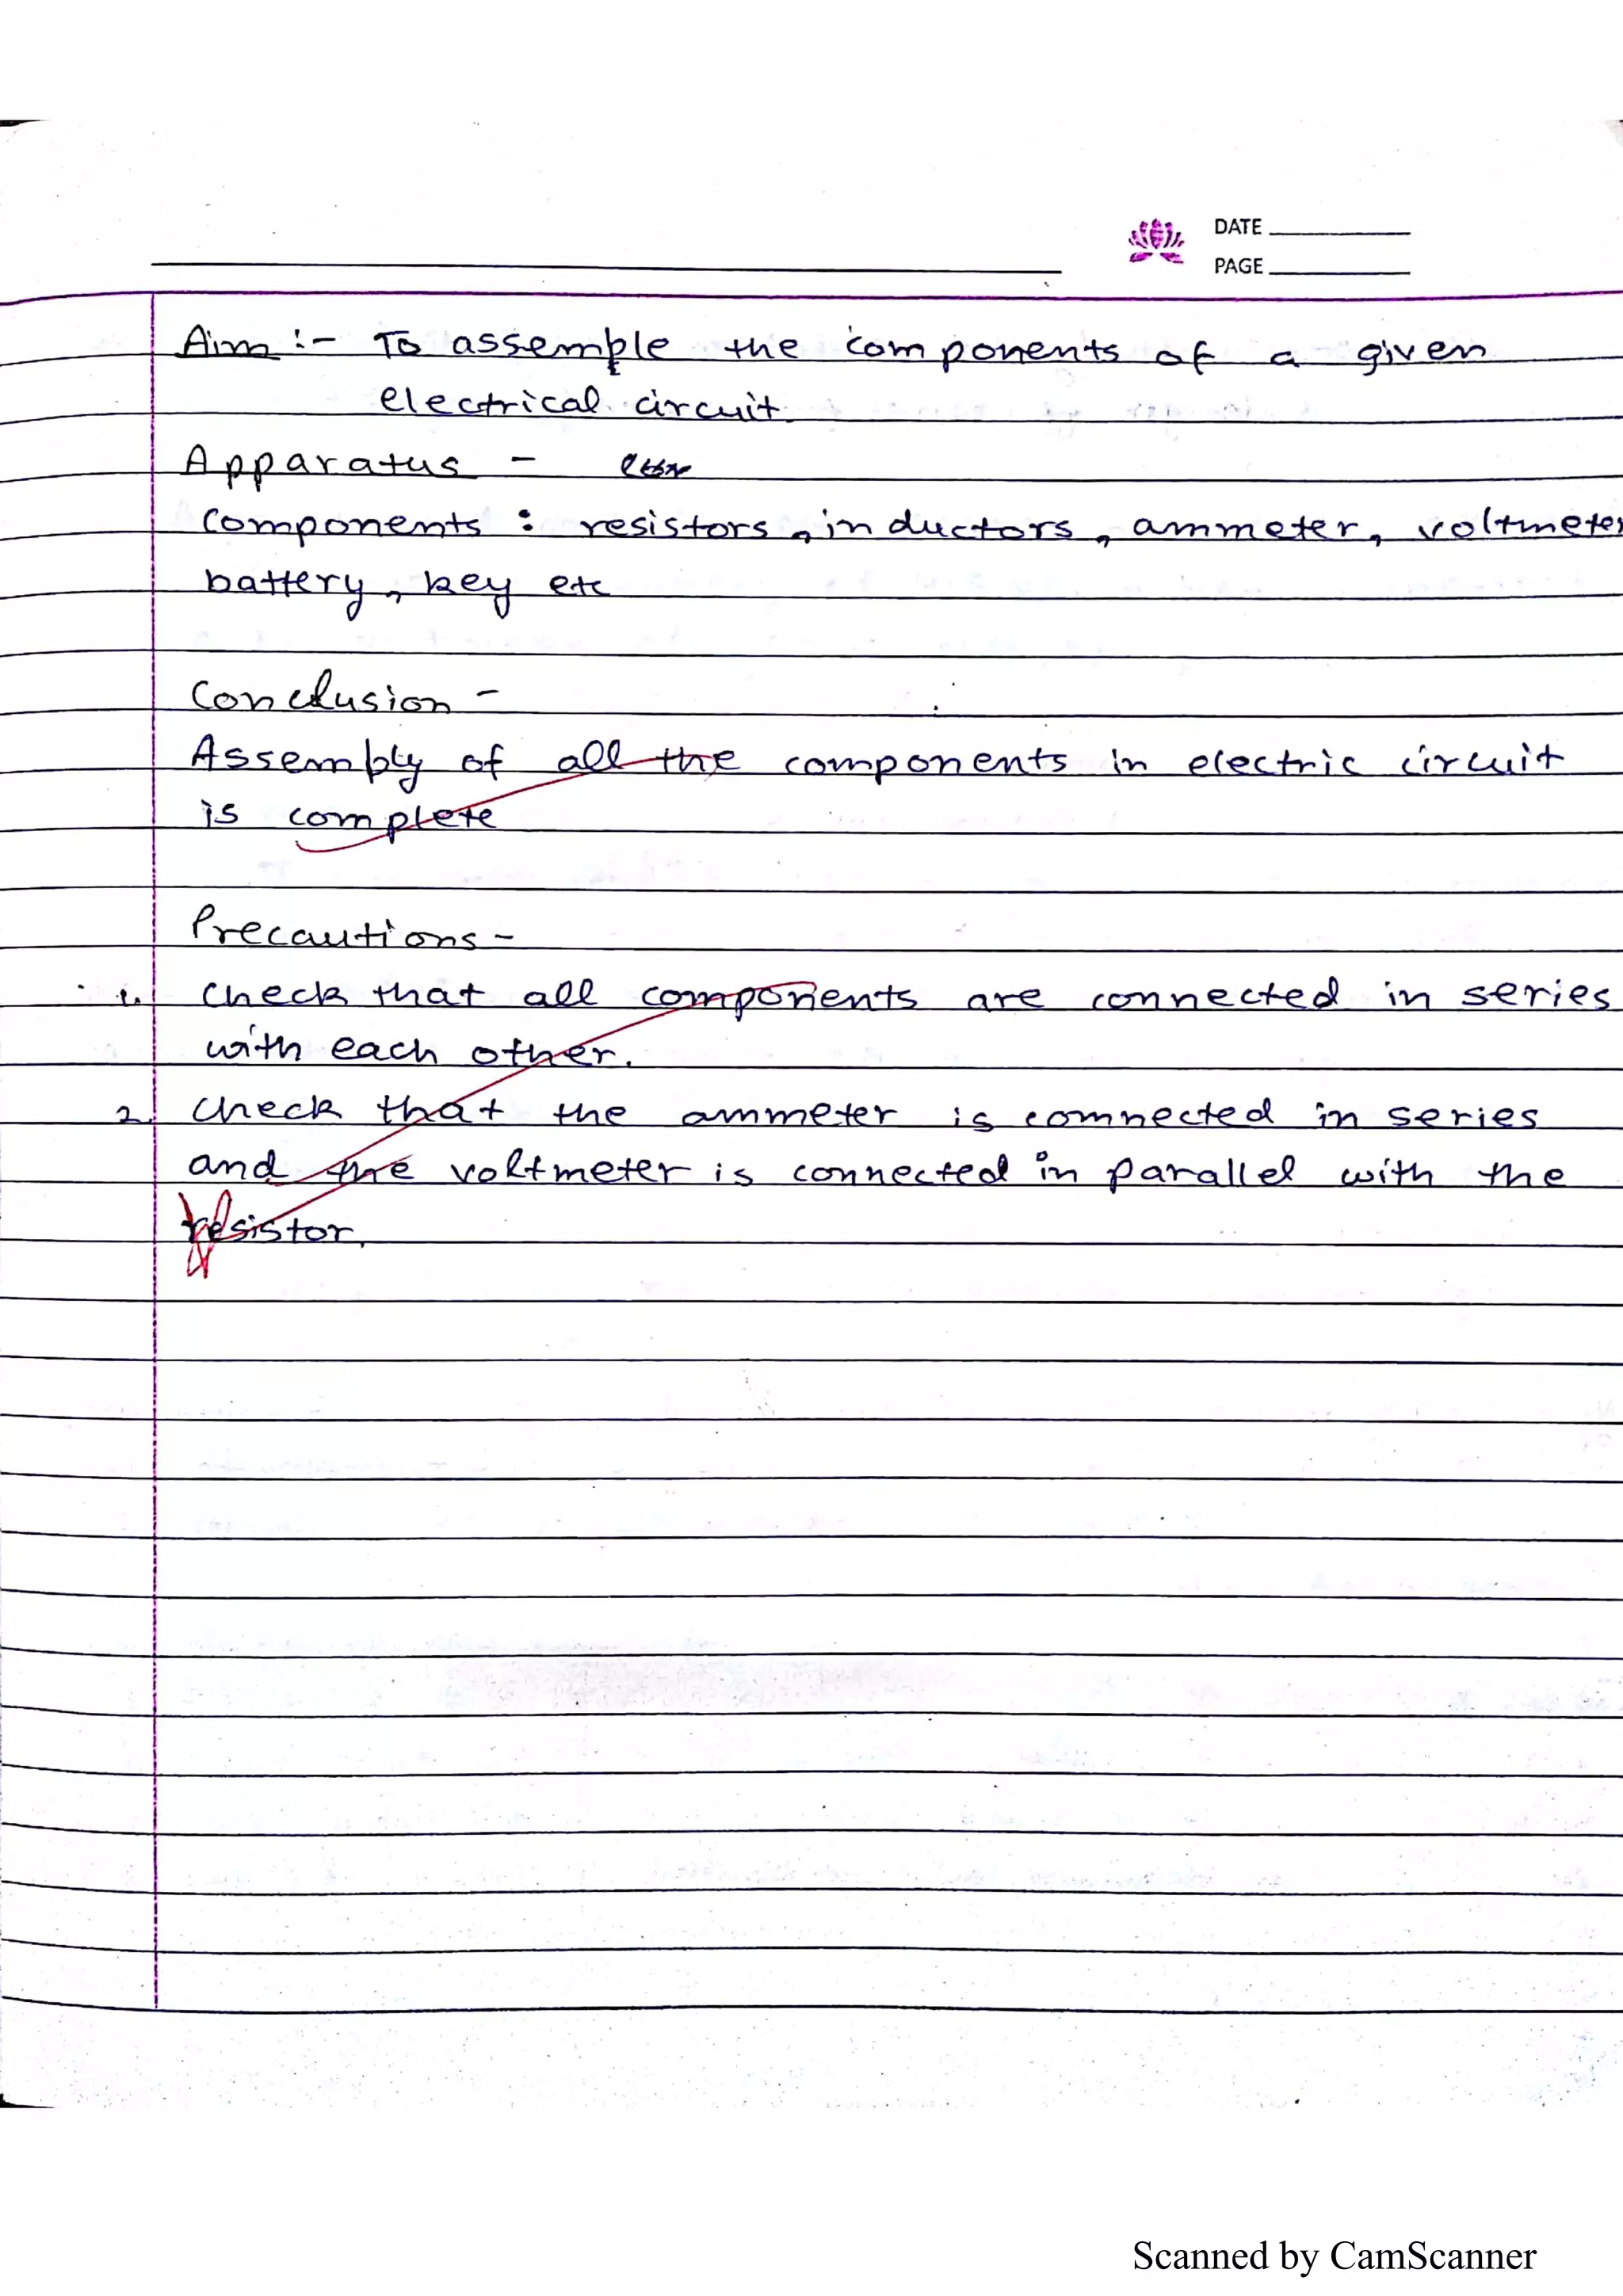 DATE
PAGE
Aim :- To assemple the components of a given
electrical circuit.
Apparatus -
Components : resistors, inductors, ammeter, voltmeter
battery, key etc
Conclusion -
Assembly of all the components in electric circuit
is complete
Precautions -
1. Check that all components are connected in series
with each other.
2. Check that the ammeter is connected in series
and the voltmeter is connected in parallel with the
resistor.
Scanned by CamScanner